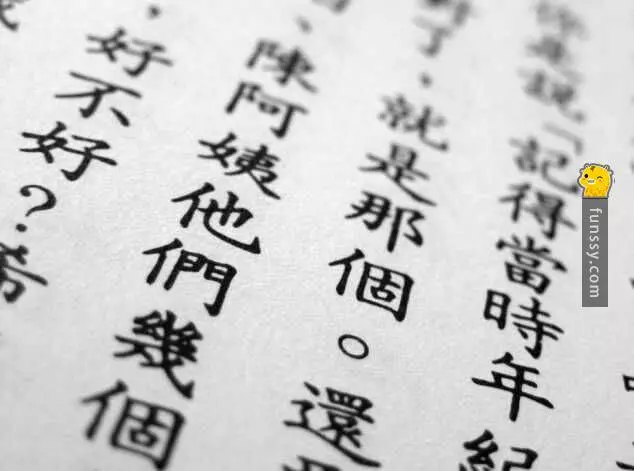 說「記得當時年紀
對了，就是那個。還
、陳阿姨他們幾個
，好不好？希
funssy.com